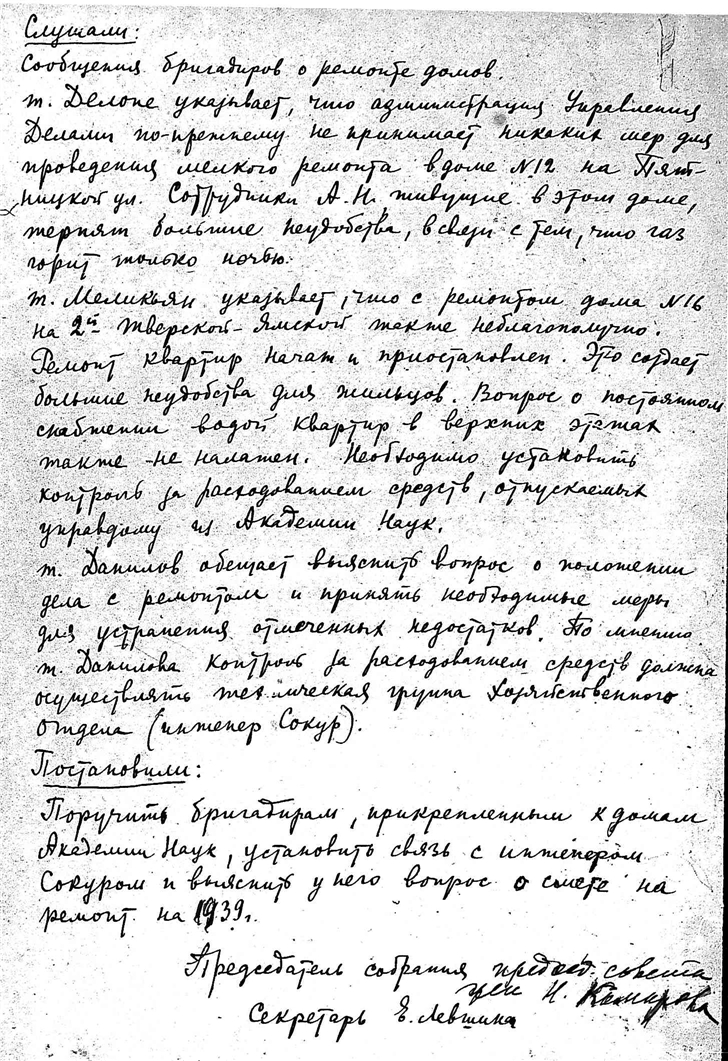 Слушали:
Сообщения бригадиров о ремонте домов.
т. Делоне указывает, что администрация Управления
Делами по-прежнему не принимает никаких мер для
проведения мелкого ремонта в доме №12 на Пят-
ницкой ул. Сотрудники А.Н. живущие в этом доме,
терпят большие неудобства, в связи с тем, что газ
горит только ночью.
т. Меликьян указывает, что с ремонтом дома №16
на 2й Тверской-Ямской также неблагополучно.
Ремонт квартир начат и приостановлен. Это создает
большие неудобства для жильцов. Вопрос о постоянном
снабжении водой квартир в верхних этажах
также не налажен. Необходимо установить
контроль за расходованием средств, отпускаемых
управдому из Академии Наук.
т. Данилов обещает выяснить вопрос о положении
дела с ремонтом и принять необходимые меры
для устранения отмеченных недостатков. По мнению
т. Данилова контроль за расходованием средств должна
осуществлять техническая группа Хозяйственного
Отдела (инженер Сокур).
Постановили:
Поручить бригадирам, прикрепленным к домам
Академии Наук, установить связь с инженером
Сокуром и выяснить у него вопрос о смете на
ремонт на 1939г.
Председатель собрания председ. совета
Н.
Секретарь Е. Левшина